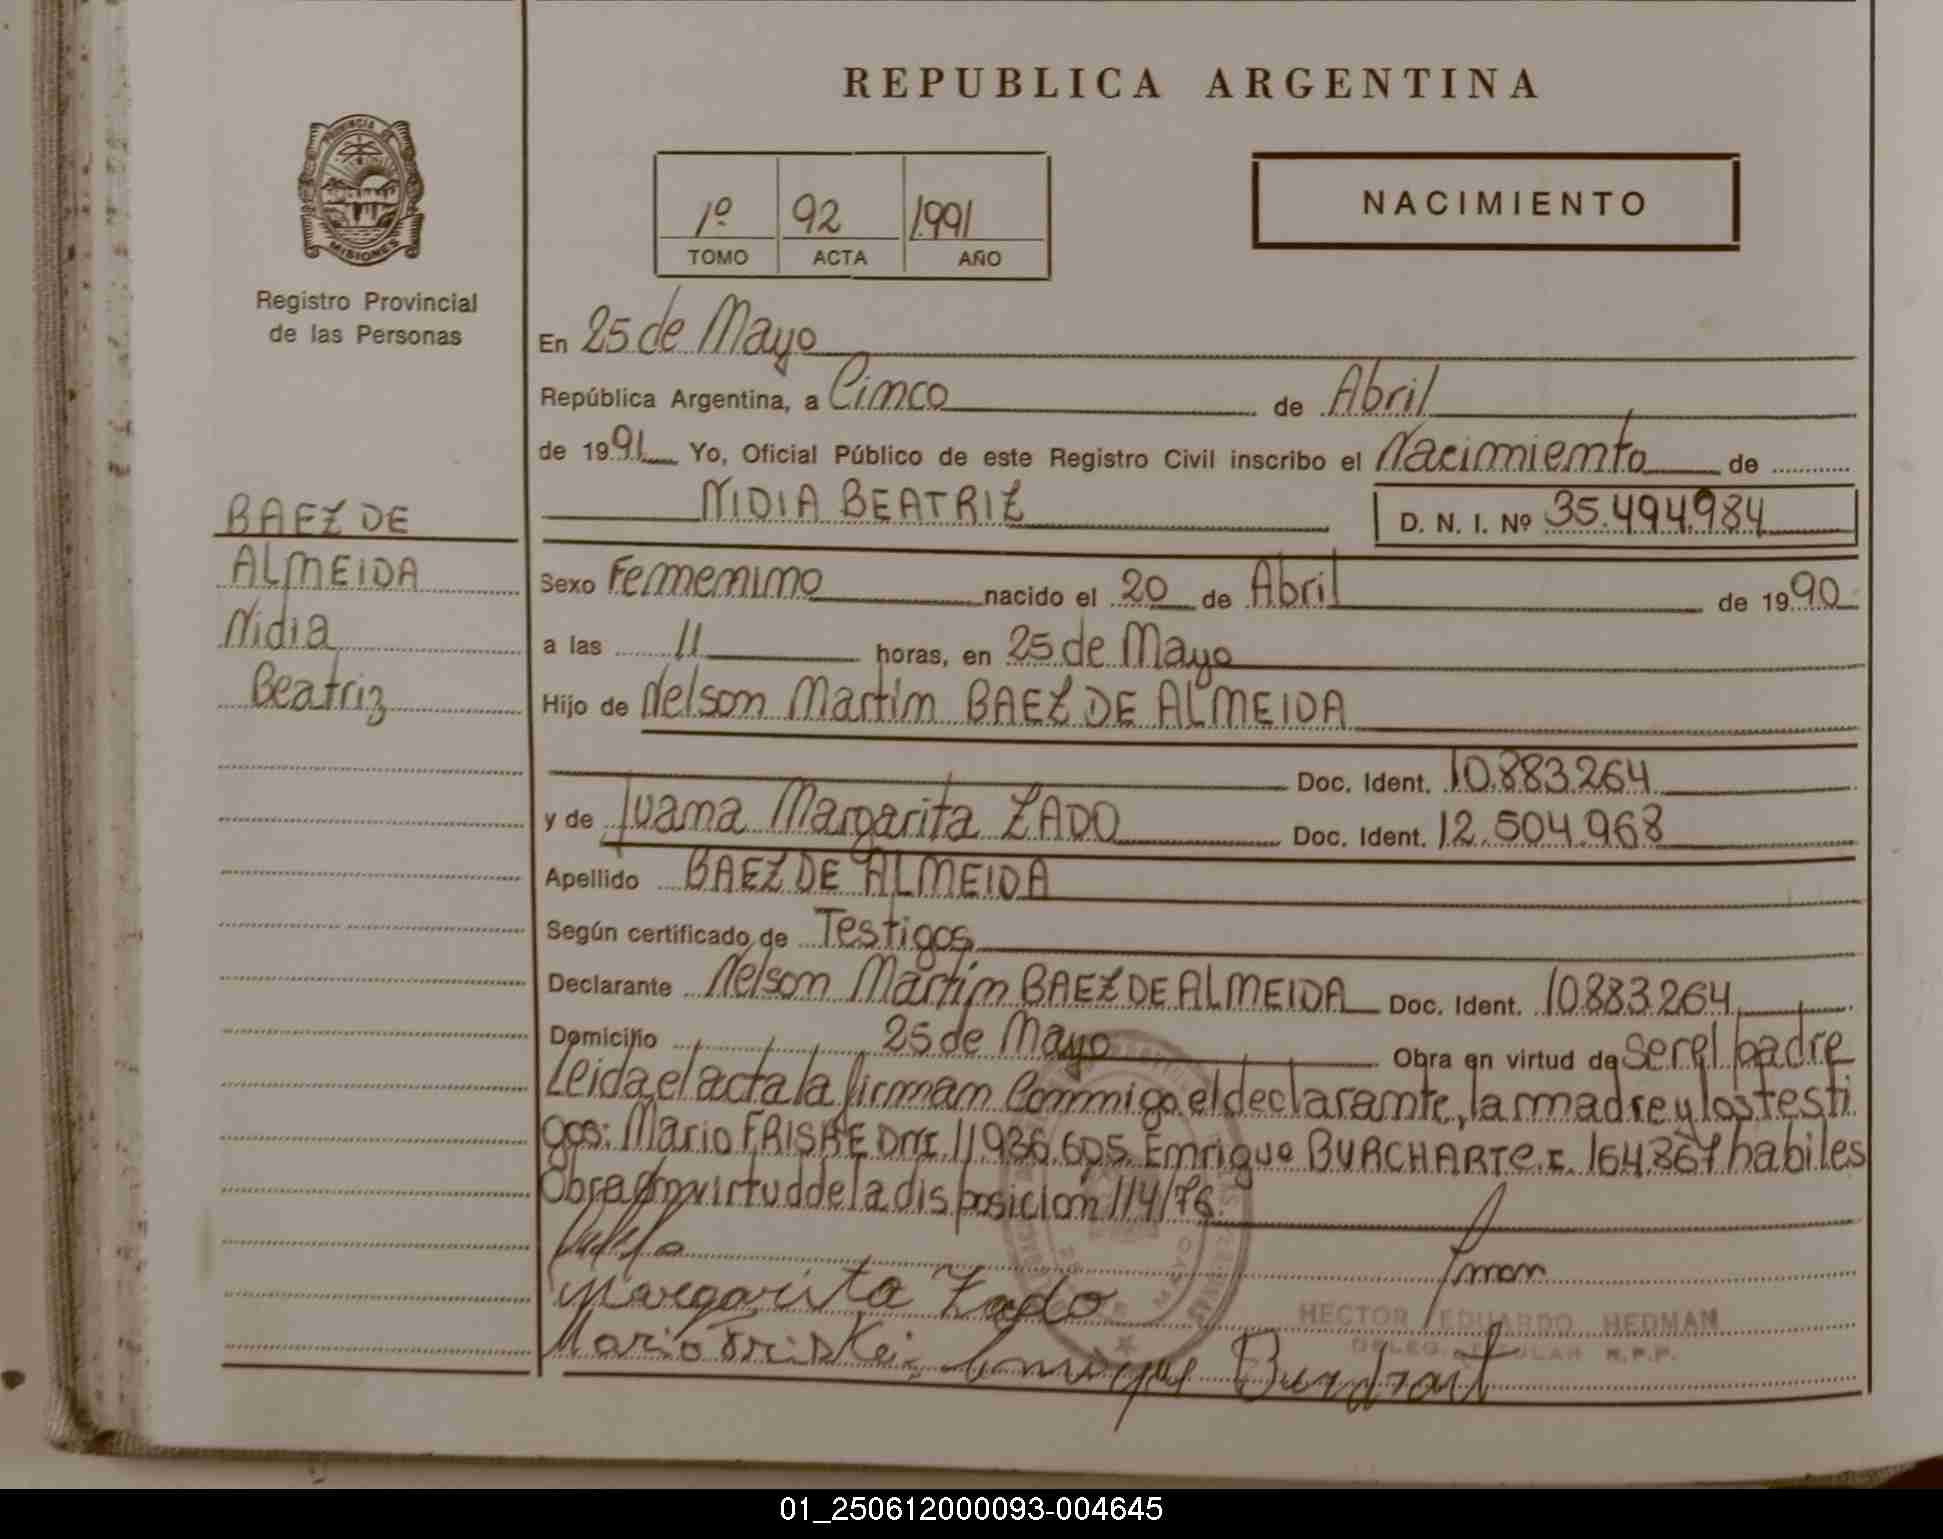 REPUBLICA ARGENTINA
PROVINCIA DE
MISIONES
Registro Provincial
de las Personas
1º 92 1991
TOMO ACTA AÑO
NACIMIENTO
En 25 de Mayo
República Argentina, a Cinco de Abril
de 1991 Yo, Oficial Público de este Registro Civil inscribo el Nacimiento de
NIDIA BEATRIZ D. N. I. Nº 35.494.984
BAEZ DE
ALMEIDA
Nidia
Beatriz
Sexo Femenino nacido el 20 de Abril de 1990
a las 11 horas, en 25 de Mayo
Hijo de Nelson Martin BAEZ DE ALMEIDA
Doc. Ident. 10.883.264
y de Juana Margarita ZADO Doc. Ident. 12.504.968
Apellido BAEZ DE ALMEIDA
Según certificado de Testigos
Declarante Nelson Martin BAEZ DE ALMEIDA Doc. Ident. 10.883.264
Domicilio 25 de Mayo Obra en virtud de ser el padre
Leida el acta la firman Conmigo el declarante, la madre y los testi
gos: Mario FRISKE DNI. 11.936.605. Enrique BURCHART C.I. 164.867 habiles
Obra en virtud de la disposicion 114/76.
Margarita Zado
HECTOR EDUARDO HEDMAN
DELEG. TITULAR R.P.P.
Mario Friske. Enrique Burchart
01_250612000093-004645